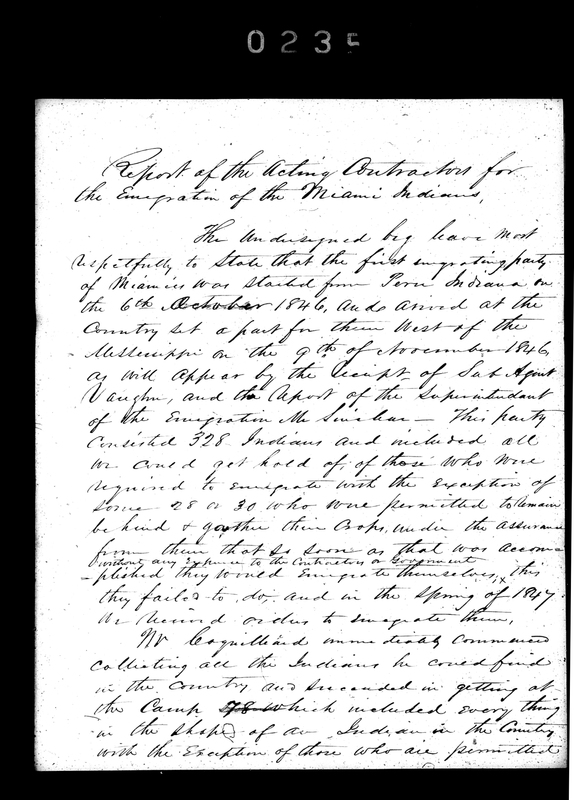 0235
Report of the Acting Contractors for
the Emigration of the Miami Indians,
The Undersigned beg leave most
respectfully to State that the first emigrating party
of Miamies was started from Peru Indiana on
the 6th October 1846, and arived at the
Country set a part for them West of the
Mississippi on the 9th of November 1846,
as will appear by the receipt of Sub Agent
Vaughn, and the report of the Superintendant
of the Emigration Mr Sinclear - This party
Consisted 328 Indians and included all
we could get hold of, of those who were
required to emigrate with the exception of
some 28 or 30 who were permitted to remain
be hind & gather their Crops, under the assurance
from them that so soon as that was accom
without any expence to the Contractors or Government
-plished they would Emigrate themselves, x this
they failed to do, and in the Spring of 1847
we received orders to emigrate them,
Mr Coquilliard immediately commenced
collecting all the Indians he could find
in the Country and succeeded in getting at
the Camp 78 which included every thing
in the shape of an Indian in the Country
with the Exception of those who are permitted